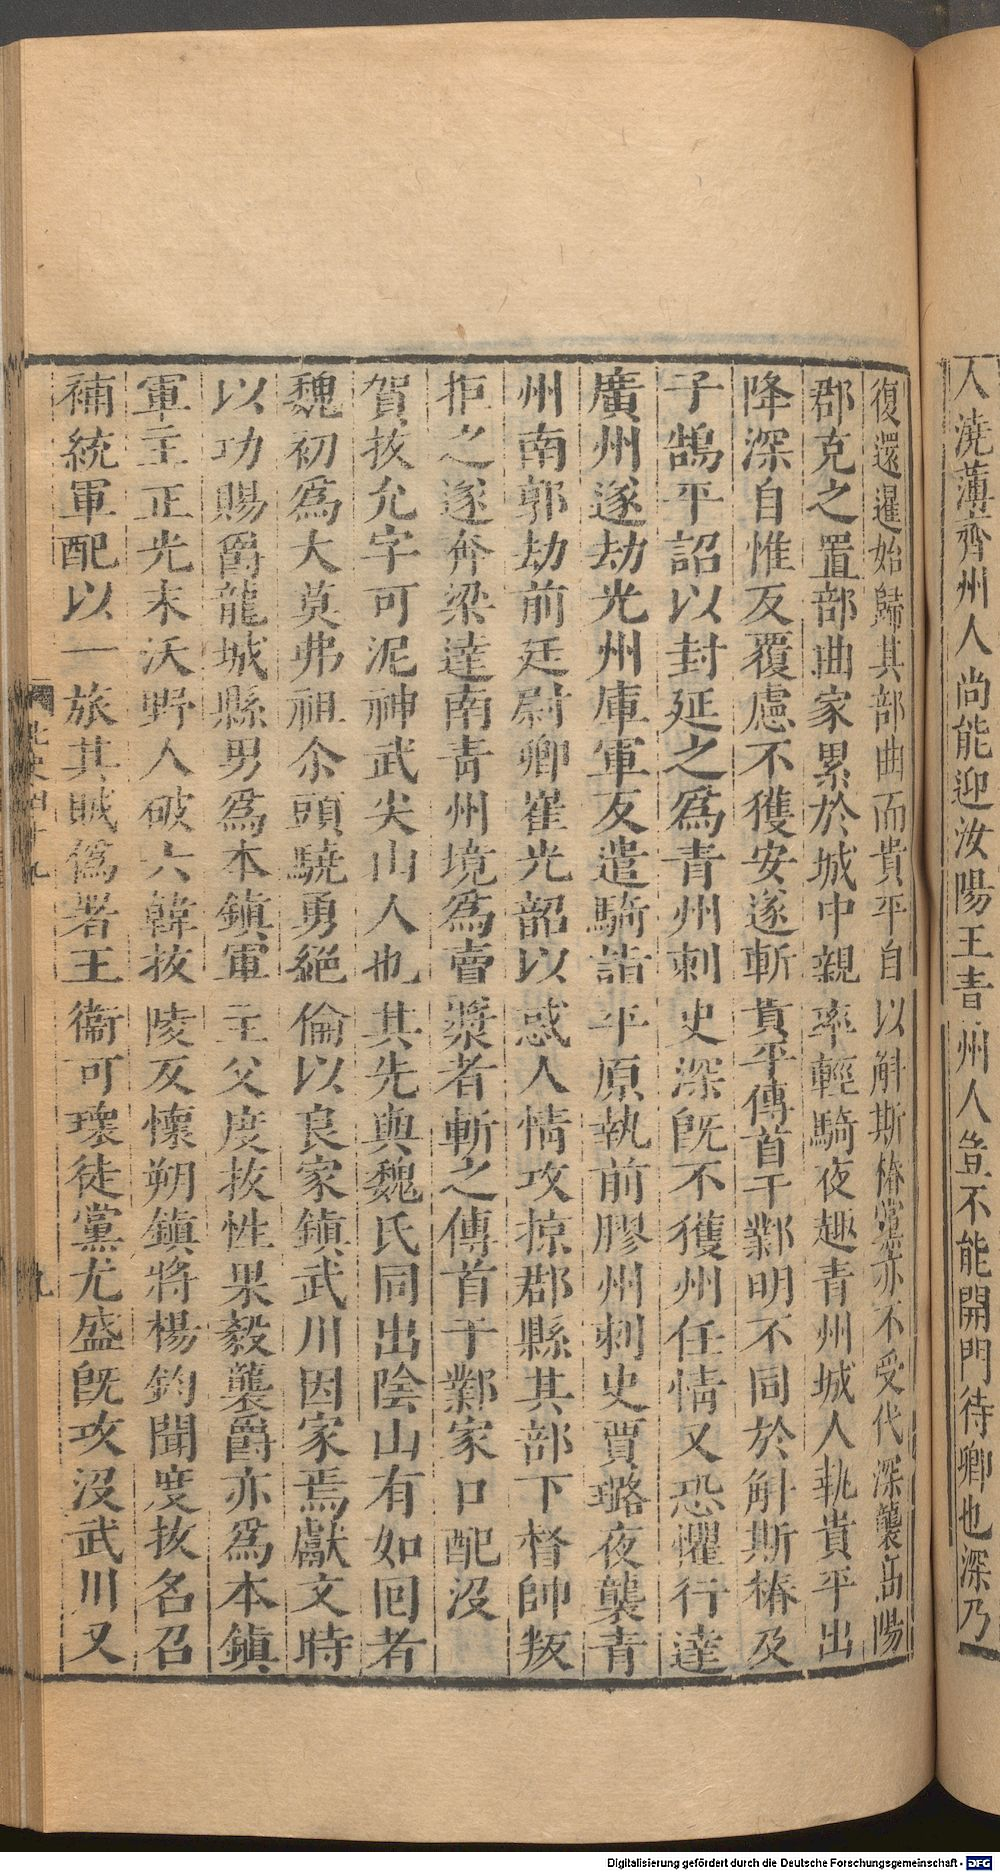 人澆薄齊州人尚能迎汝陽王青州人豈不能開門待卿也深乃
復還暹始歸其部曲而貴平自以斛斯椿黨亦不受代深襲高陽
郡克之置部曲家累於城中親率輕騎夜趣青州城人執貴平出
降深自惟反覆慮不獲安遂斬貴平傳首于鄴明不同於斛斯椿及
子鵠平詔以封延之爲青州刺史深旣不獲州任情又恐懼行達
廣州遂劫光州庫軍反遣騎詣平原執前膠州刺史賈璐夜襲青
州南郭劫前廷尉卿崔光韶以惑人情攻掠郡縣其部下督帥叛
拒之遂奔梁達南青州境爲賣漿者斬之傳首于鄴家口配没
賀抜允字可泥神武尖山人也其先與魏氏同出陰山有如囘者
魏初爲大莫弗祖尒頭驍勇絕倫以良家鎮武川因家焉獻文時
以功賜爵龍城縣男爲本鎮軍主父度抜性果毅襲爵亦爲本鎮
軍主正光末沃野人破六韓抜陵反懷朔鎮將楊鈞聞度抜名召
補統軍配以一旅其賊僞署王衞可瓌徒黨尤盛旣攻没武川又
北史四十九
九
Digitalisierung gefördert durch die Deutsche Forschungsgemeinschaft - DFG